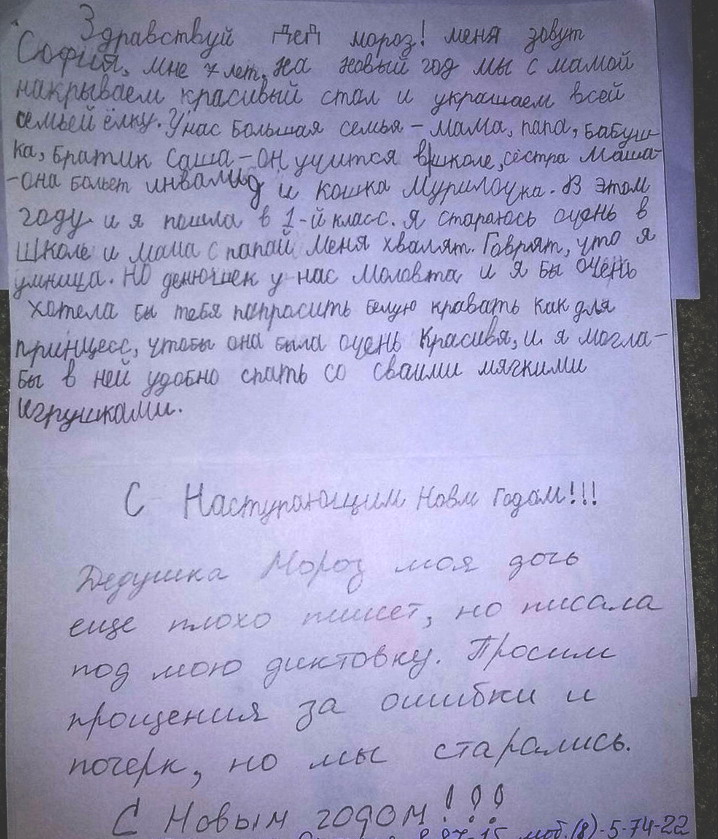 Здравствуй Дед мороз! меня зовут
София, мне 7 лет, на новый год мы с мамой
накрываем красивый стал и украшаем всей
семьей ёлку. У нас большая семья - мама, папа, бабуш-
ка, братик Саша - он учится в школе, сестра Маша -
-она бальет инвалид и кошка Мурилочка. В этом
году и я пошла в 1-й класс. Я стараюсь очень в
школе и мама с папай меня хвалят. Говрят, что я
умница. Но денюшек у нас моловта и я бы очень
хотела бы тебя папросить белую кравать как для
принцесс, чтобы она была очень красивя, и я могла-
бы в ней удобно спать со сваими мягкими
игрушками.
С Наступающим Новм Годом!!!
Дедушка Мороз моя дочь
еще плохо пишет, но писала
под мою диктовку. Просим
прощения за ошибки и
почерк, но мы старались.
С Новым годом!!!
моб.(8)-5-74-22